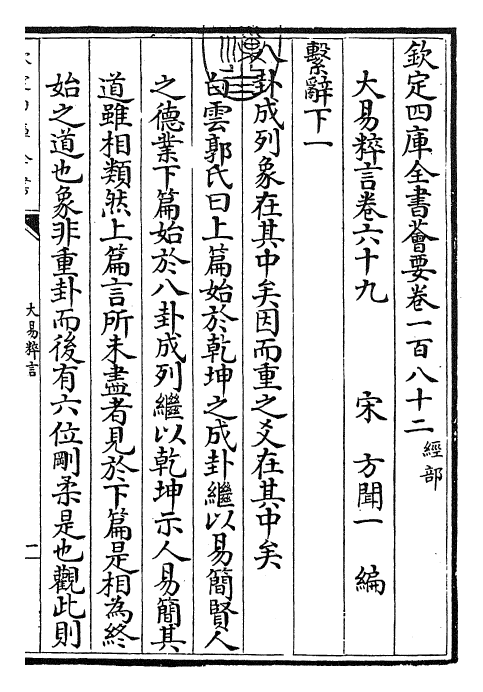 欽定四庫全書薈要卷一百八十二 經部
大易粹言卷六十九 宋 方聞一 編
繫辭下一
八卦成列象在其中矣因而重之爻在其中矣
白雲郭氏曰上篇始於乾坤之成卦繼以易簡賢人
之德業下篇始於八卦成列繼以乾坤示人易簡其
道雖相類然上篇言所未盡者見於下篇是相為終
始之道也象非重卦而後有六位剛柔是也觀此則
大易粹言